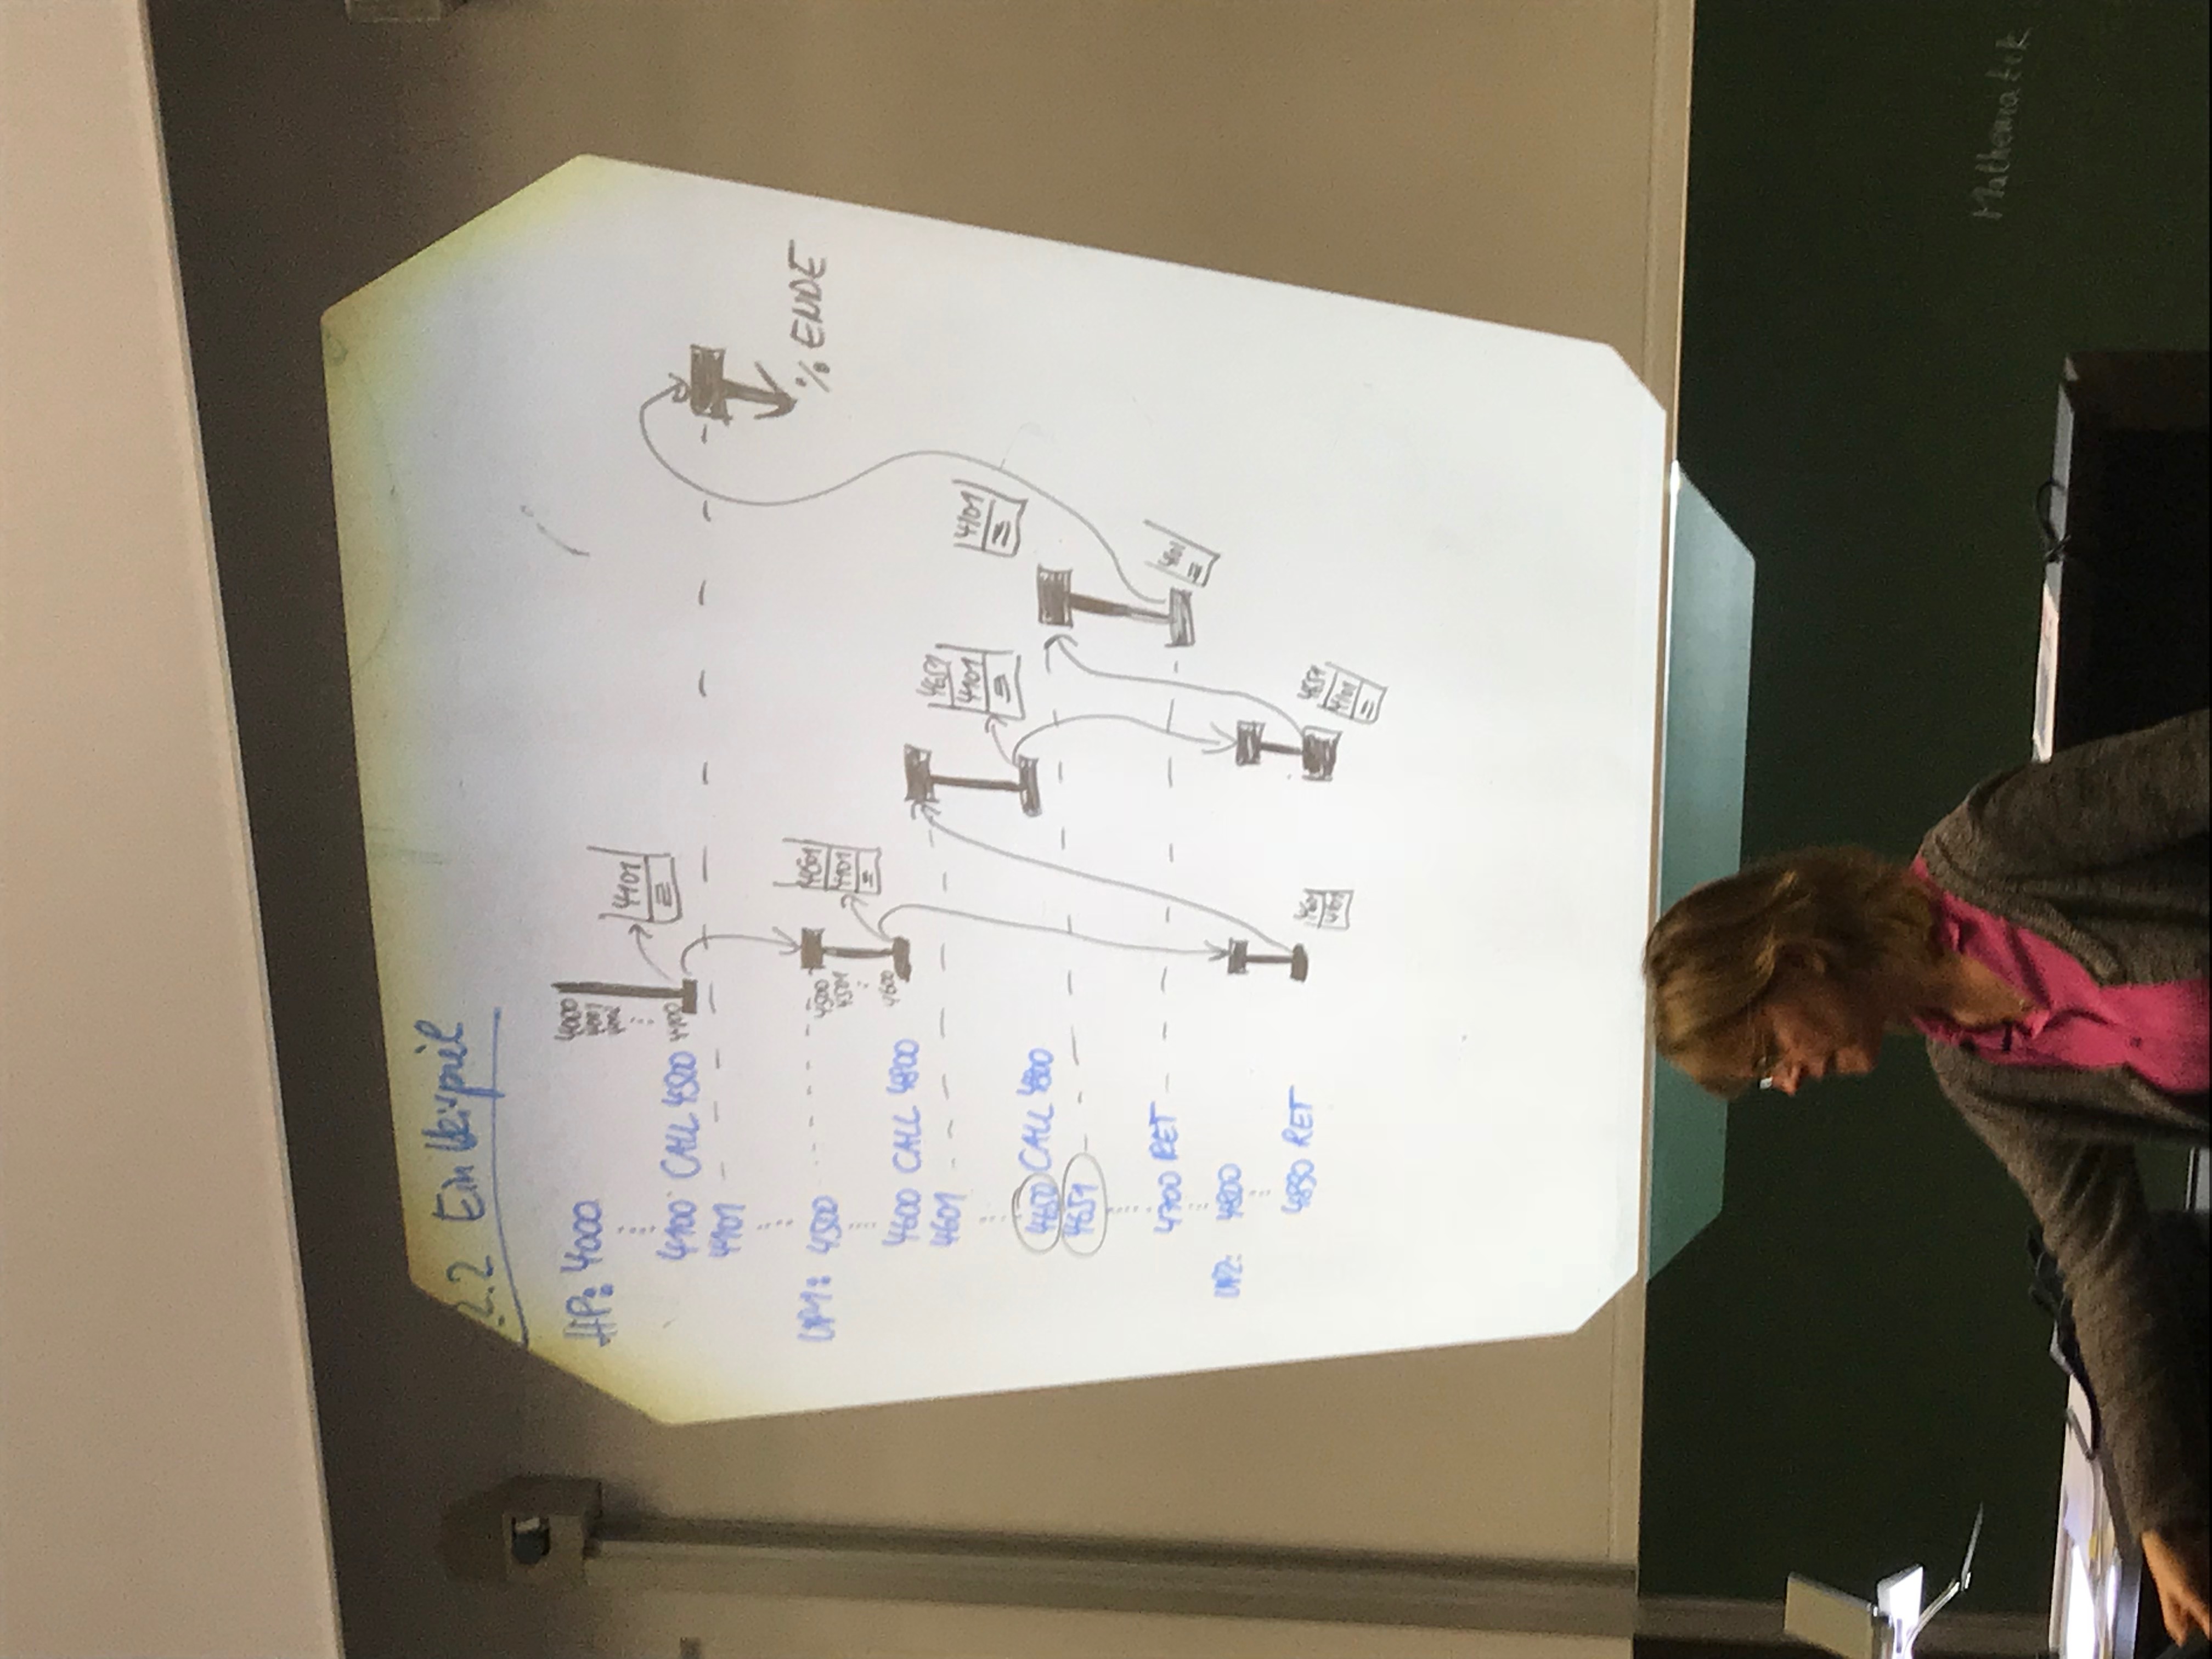 .2.2 Ein Beispiel
HP: 4000
4100 CALL 4500
4101
UP1: 4500
4600 CALL 4800
4601
4650 CALL 4800
4651
4700 RET
UP2: 4800
4850 RET
4000
4001
4002
4100
4101
4500
4501
4600
4601
4101
4651
4101
4101
4101
4601
4101
4651
4101
% ENDE
Mathematik